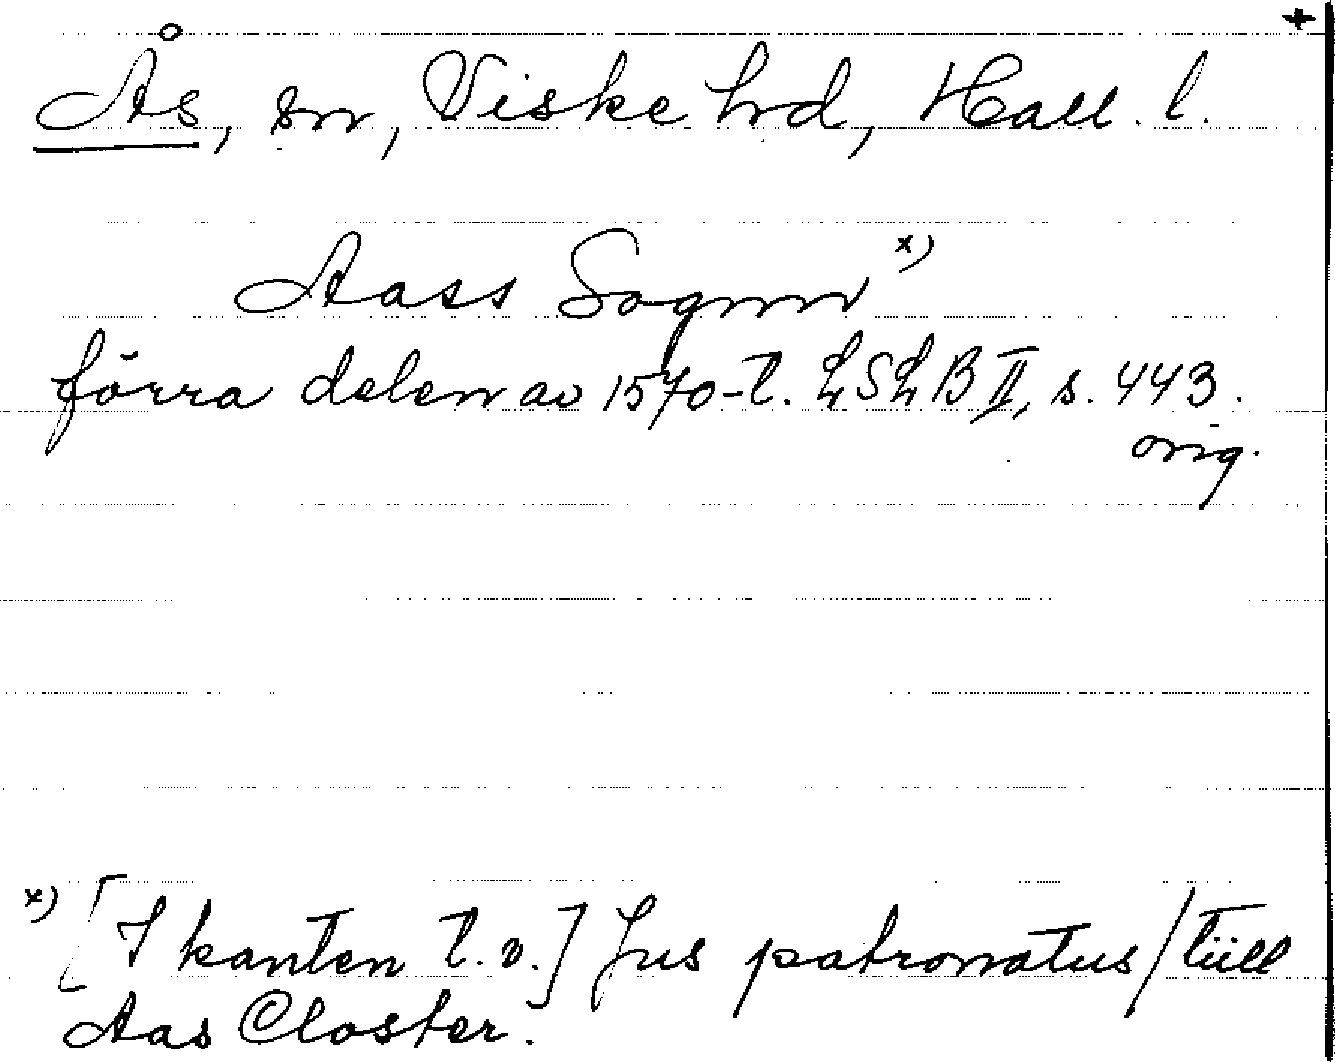 +
Ås, sn, Viske hd, Hall. l.
Aass Sognn x)
förra delen av 1570-t. LSLB II, s. 443.
orig.
x) [I kanten t.v.] Jus patronatus/tüll
Aas Closter.